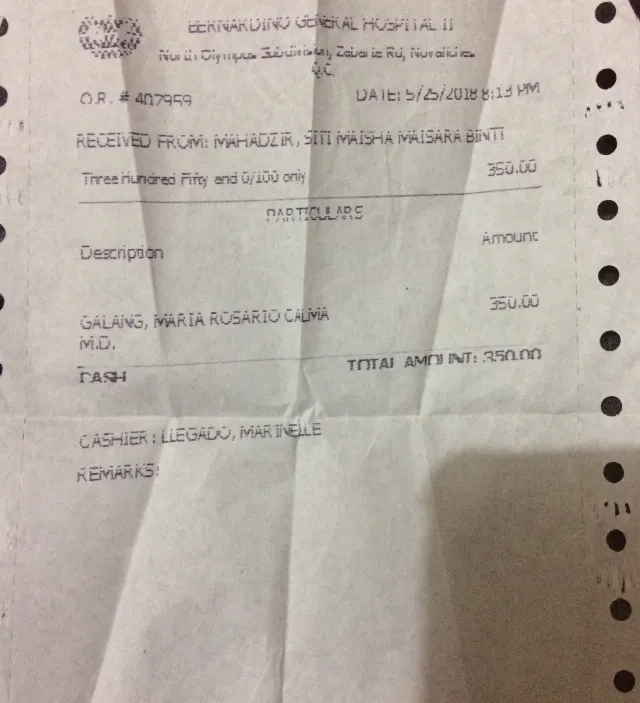 BERNARDINO GENERAL HOSPITAL II
North Olympus Subdivision, Zabarte Rd, Novaliches
Q.C.
O.R. # 407959 DATE: 5/25/2018 8:13 PM
RECEIVED FROM: MAHADZIR, SITI MAISHA MAISARA BINTI
Three Hundred Fifty and 0/100 only 350.00
PARTICULARS
Description Amount
GALANG, MARIA ROSARIO CALMA 350.00
M.D.
CASH TOTAL AMOUNT: 350.00
CASHIER : LLEGADO, MARINELLE
REMARKS: